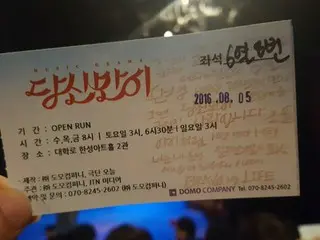 MUSIC DRAMA
당신만이
좌석 6열 8번
2016.08.05
기 간 : OPEN RUN
시 간 : 수,목,금 8시 | 토요일 3시, 6시30분 | 일요일 3시
장 소 : 대학로 한성아트홀 2관
제작 : ㈜ 도모컴퍼니, 극단 오늘
주관 : ㈜ 도모컴퍼니, JTN 미디어
및 문의 : 070-8245-2602
DOMO COMPANY Tel. 070-8245-2602